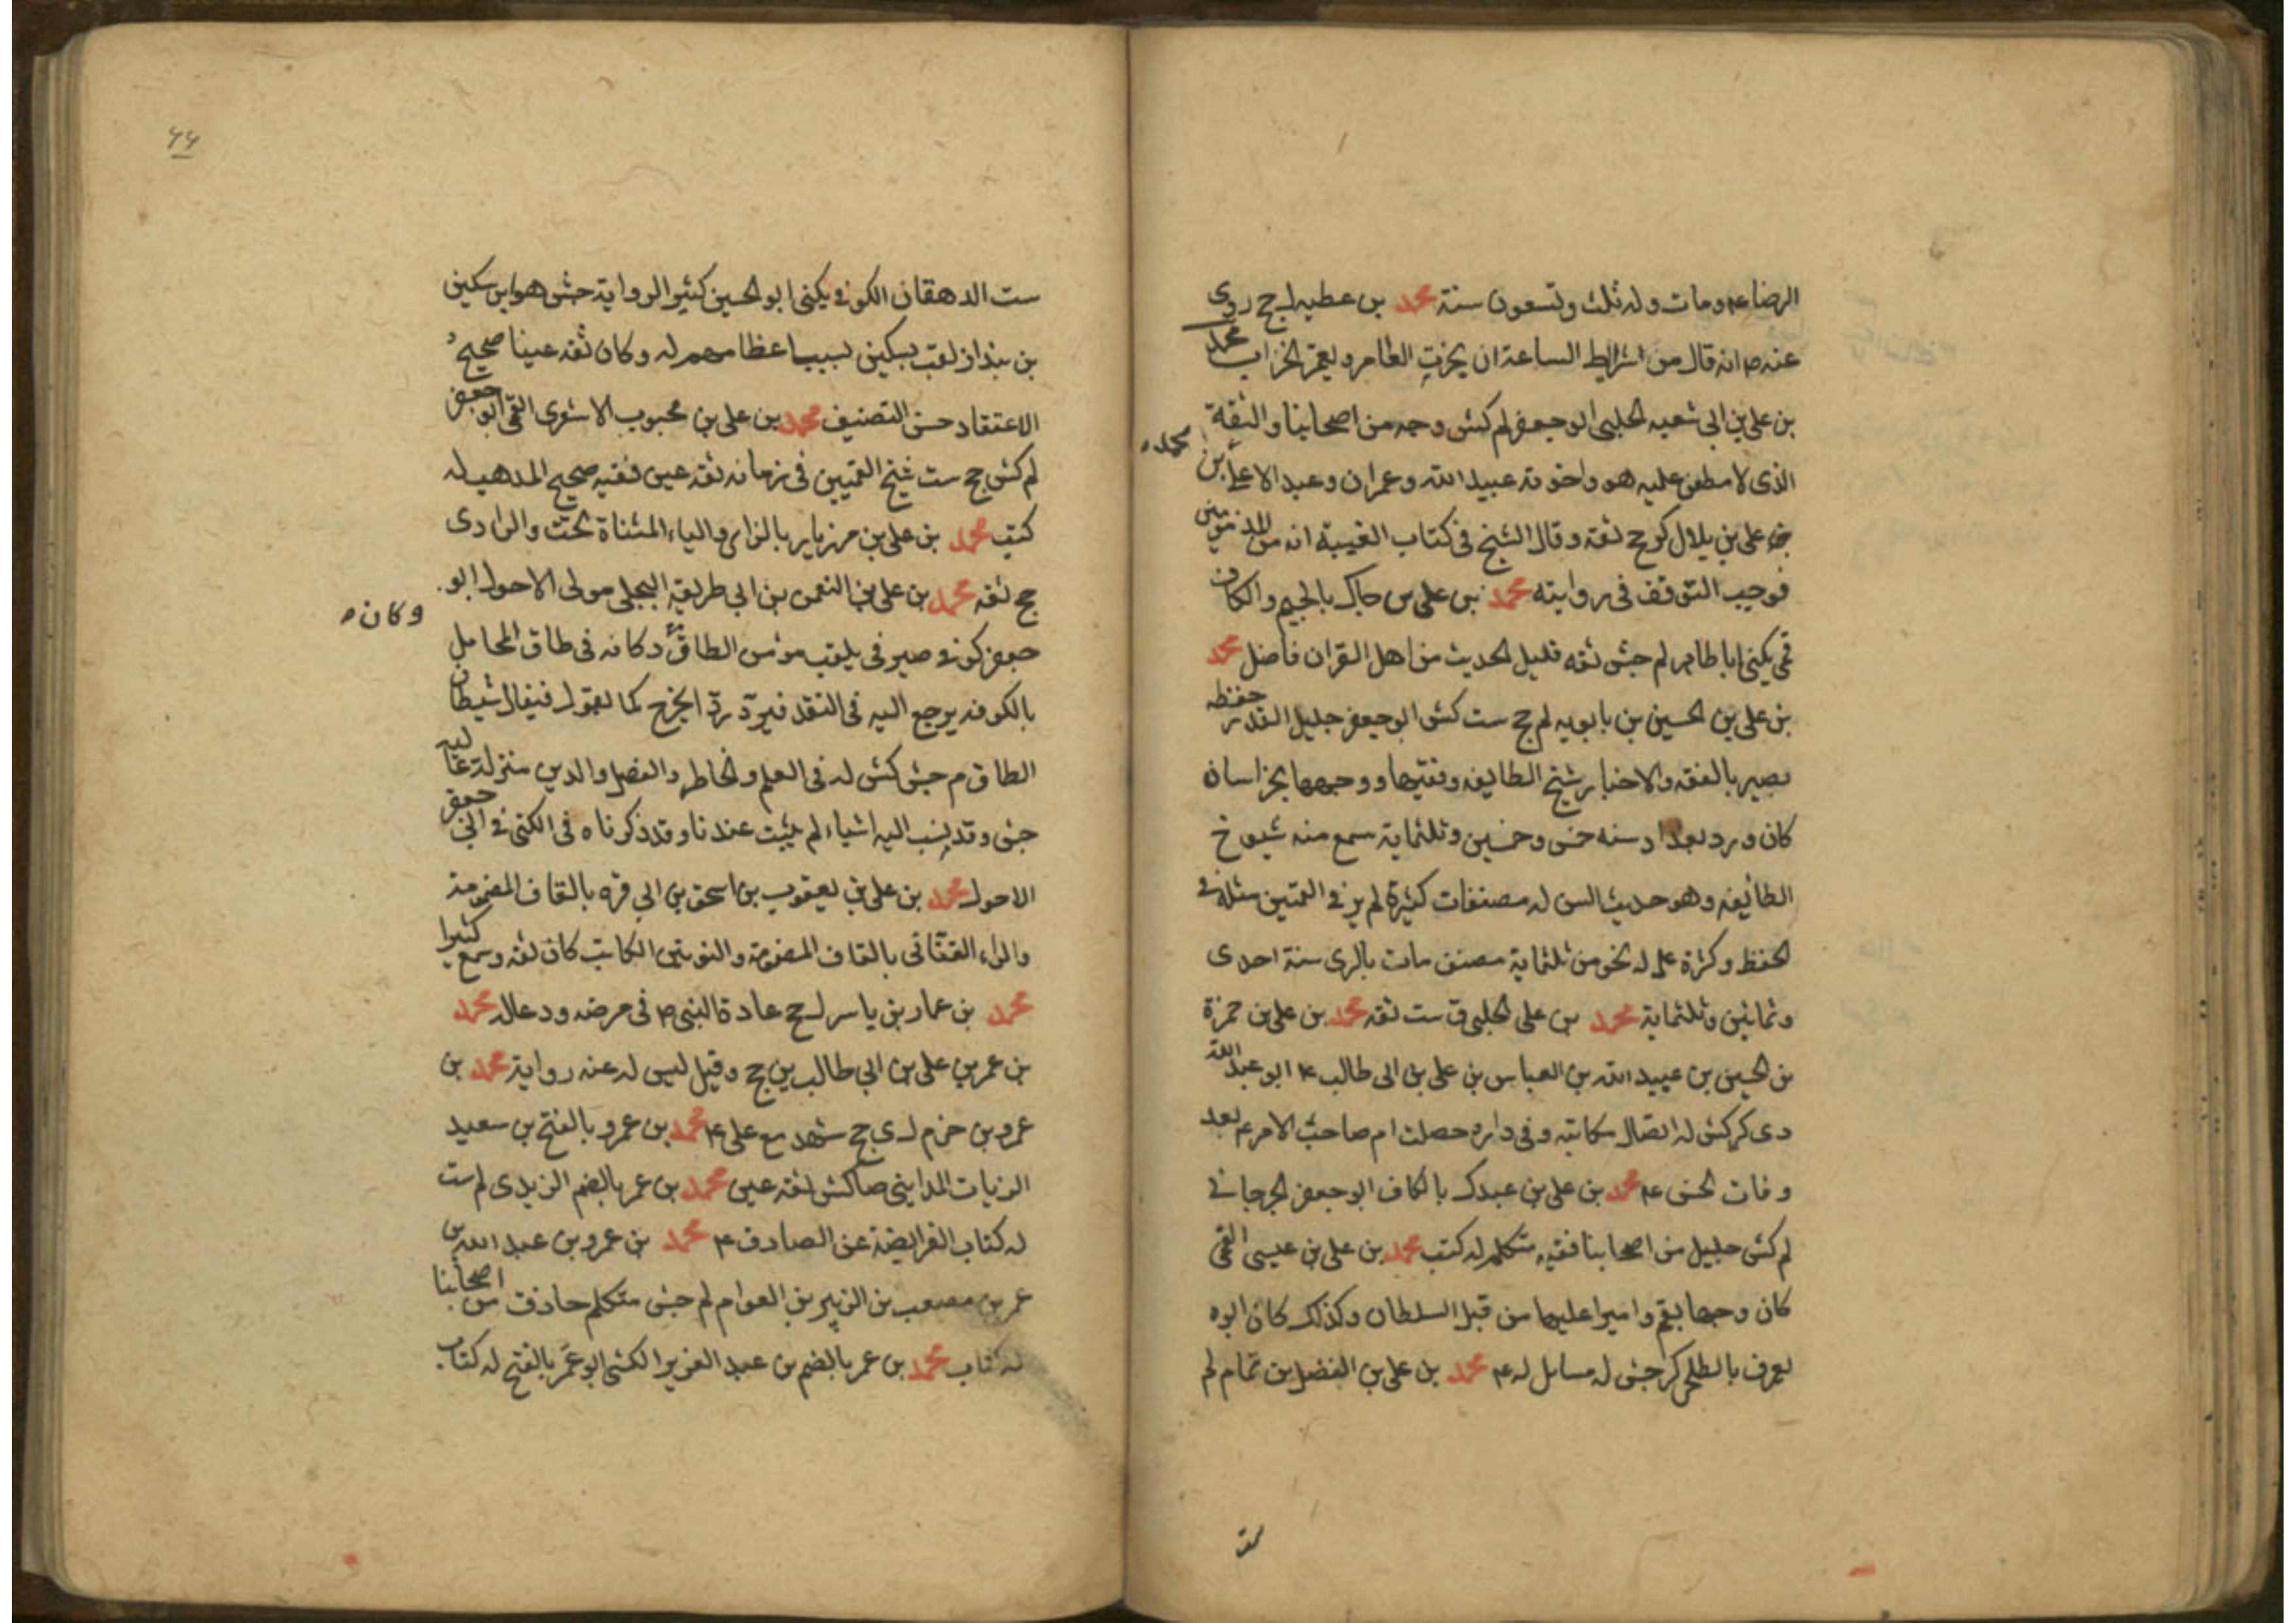 الرضا ع م ومات وله ثلث وتسعون سنة محمد بن عطيه ل جح روى
عنه ص انه قال من اشراط الساعة ان يخرب العامر ويعمر الخراب محمد
بن علي بن ابي شعبه الحلبي ابو جعفر لم كش وجه من اصحابنا والثقة
الذي لا مطعن عليه هو واخوته عبيد الله وعمران وعبد الاعلى محمد بن
علي بن بلال كر جح ثقة وقال الشيخ في كتاب الغيبة انه من المذمومين
فوجب التوقف في روايته محمد بن علي بن جاك بالجيم والكاف
قمي يكنى ابا طاهر لم جش ثقه قليل الحديث من اهل القران فاضل محمد
بن علي بن الحسين بن بابويه لم جح ست كش ابو جعفر جليل القدر حفظه
بصير بالفقه والاخبار شيخ الطايفه وفقيهها ووجهها بخراسان
كان ورد بغداد سنه خمس وخمسين وثلثماية سمع منه شيوخ
الطائفه وهو حديث السن له مصنفات كثيرة لم ير في القميين مثله في
الحفظ وكثرة علمه له نحو من ثلثماية مصنف مات بالرى سنة احدى
وثمانين وثلثماية محمد بن علي الحلبي ق ست ثقه محمد بن علي بن حمزة
بن الحسين بن عبيد الله بن العباس بن علي بن ابي طالب ع ابو عبد الله
دى كر كش له اتصال مكاتبه وفي داره حصلت ام صاحب الامر ع بعد
وفات الحسن ع محمد بن علي بن عبدك بالكاف ابو جعفر الجرجاني
لم كش جليل من اصحابنا فقيه متكلم له كتب محمد بن علي بن عيسى القمي
كان وجها بقم واميرا عليها من قبل السلطان وكذلك كان ابوه
يعرف بالطلحي كر جش له مسايل له ع محمد بن علي بن الفضل بن تمام لم
ست
٦٦
ست الدهقان الكوفي يكنى ابو الحسين كثير الرواية جش هو ابن سكين
بن بنداذ لقب بسكين بسبب اعظامهم له وكان ثقه عينا صحيح
الاعتقاد حسن التصنيف محمد بن علي بن محبوب الاشعرى القمي ابو جعفر
لم كش جح ست شيخ القميين في زمانه ثقه عين فقيه صحيح المذهب له
كتب محمد بن علي بن مهزيار بالزاى والياء المثناة تحت والراء دى
جح ثقه محمد بن علي بن النعمن بن ابي طريقه البجلي مولى الاحول ابو
جعفر كوفي صيرفي يلقب مؤمن الطاق وكان دكانه في طاق المحامل
بالكوفه يرجع اليه في النقد فيرد ردا يخرج كما يقول فيقال شيطان
الطاق م جش كش له في العلم والخاطر والفضل والدين منزلة عاليه
جش وقد ينسب اليه اشياء لم يثبت عندنا وقد ذكرناه في الكنى في ابي جعفر
الاحول محمد بن علي بن يعقوب بن اسحق بن ابي قره بالقاف المضمومة
والراء القنائى بالقاف المضمومة والنونين الكاتب كان ثقه وسمع كثيرا
محمد بن عمار بن ياسر ل جح عادة النبي ص في مرضه ودعا له محمد
بن عمر بن علي بن ابي طالب ين جح وقيل ليس له عنه رواية محمد بن
عمرو بن حزم ل ى جح شهد مع علي ع محمد بن عمرو بالفتح بن سعيد
الزيات المدايني ضا كش ثقه عين محمد بن عمر بالضم الزيدى لم ست
له كتاب الفرايضة عن الصادق ع محمد بن عمرو بن عبد الله بن
عمر بن مصعب بن الزبير بن العوام لم جش متكلم حاذق من اصحابنا
له كتاب محمد بن عمر بالضم بن عبد العزيز الكشي ابو عمر بالفتح له كتاب